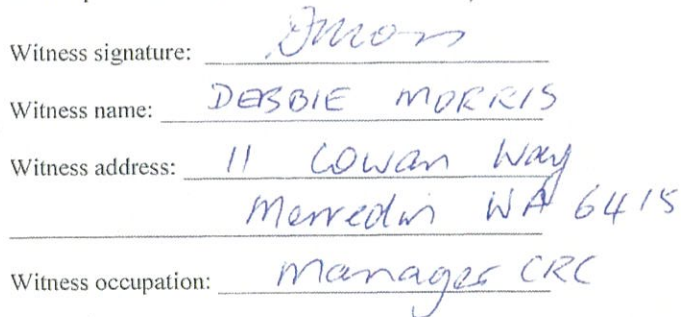 Witness signature:
Witness name: DEBBIE MORRIS
Witness address: 11 Cowan Way
Merredin WA 6415
Witness occupation: Manager CRC